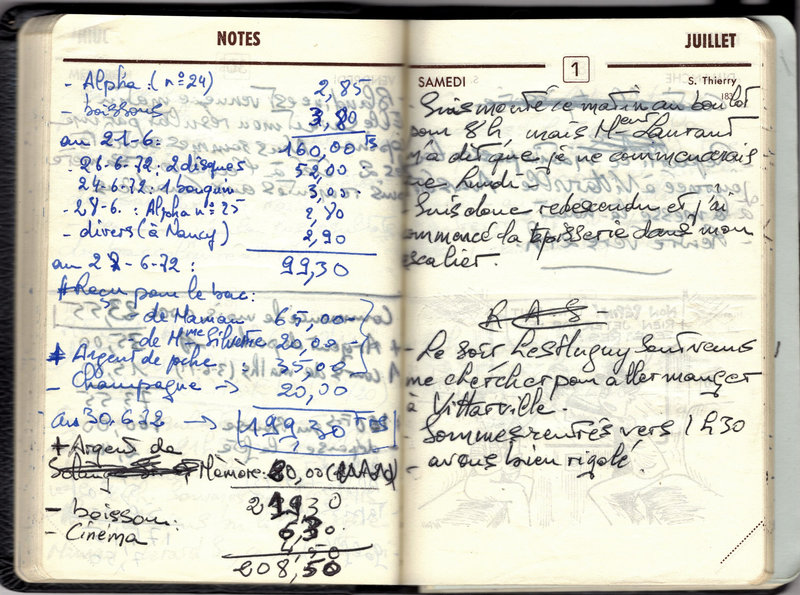 NOTES
- Alpha: (n° 24) 2,85
- boissons 3,80
au 21-6: 160,00 Frs
- 26-6-72: 2 disques 52,00
24-6-72: 1 bouquin 3,00
- 28-6.: Alpha n° 25 2,80
- divers (à Nancy) 2,90
au 28-6-72: 99,30
# Reçu pour le bac:
de Maman 65,00
de Mme Silvestre 20,00
+ Argent de poche: 35,00
- Champagne → 20,00
au 30.6.72 → 199,30
+ Argent de
Mémère: 20,00
219,30
- boisson: 6,30
- Cinéma 4,50
208,50
JUILLET
SAMEDI 1 S. Thierry
- Suis monté ce matin au boulot
pour 8h, mais Mr Laurant
m'a dit que je ne commencerais
que lundi.
- Suis donc redescendu et j'ai
commencé la tapisserie dans mon
escalier.
R A S -
- Le soir, Les Huguy sont venus
me chercher pour aller manger
à Vittarville.
- Sommes rentrés vers 1h30
- avons bien rigolé.